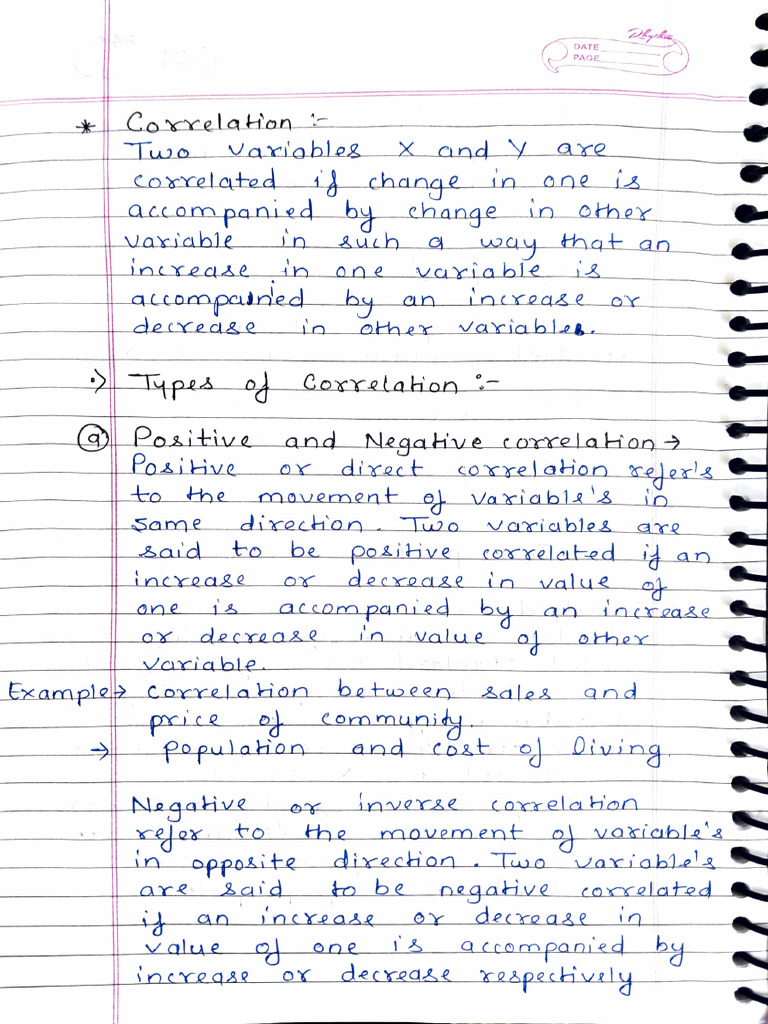 DATE
PAGE
* Correlation :-
Two variables X and Y are
correlated if change in one is
accompanied by change in other
variable in such a way that an
increase in one variable is
accompained by an increase or
decrease in other variables.
•> Types of Correlation :-
(a) Positive and Negative correlation →
Positive or direct correlation refer's
to the movement of variable's in
same direction. Two variables are
said to be positive correlated if an
increase or decrease in value of
one is accompanied by an increase
or decrease in value of other
variable.
Example → correlation between sales and
price of community.
→ population and cost of living.
Negative or inverse correlation
refer to the movement of variable's
in opposite direction. Two variable's
are said to be negative correlated
if an increase or decrease in
value of one is accompanied by
increase or decrease respectively